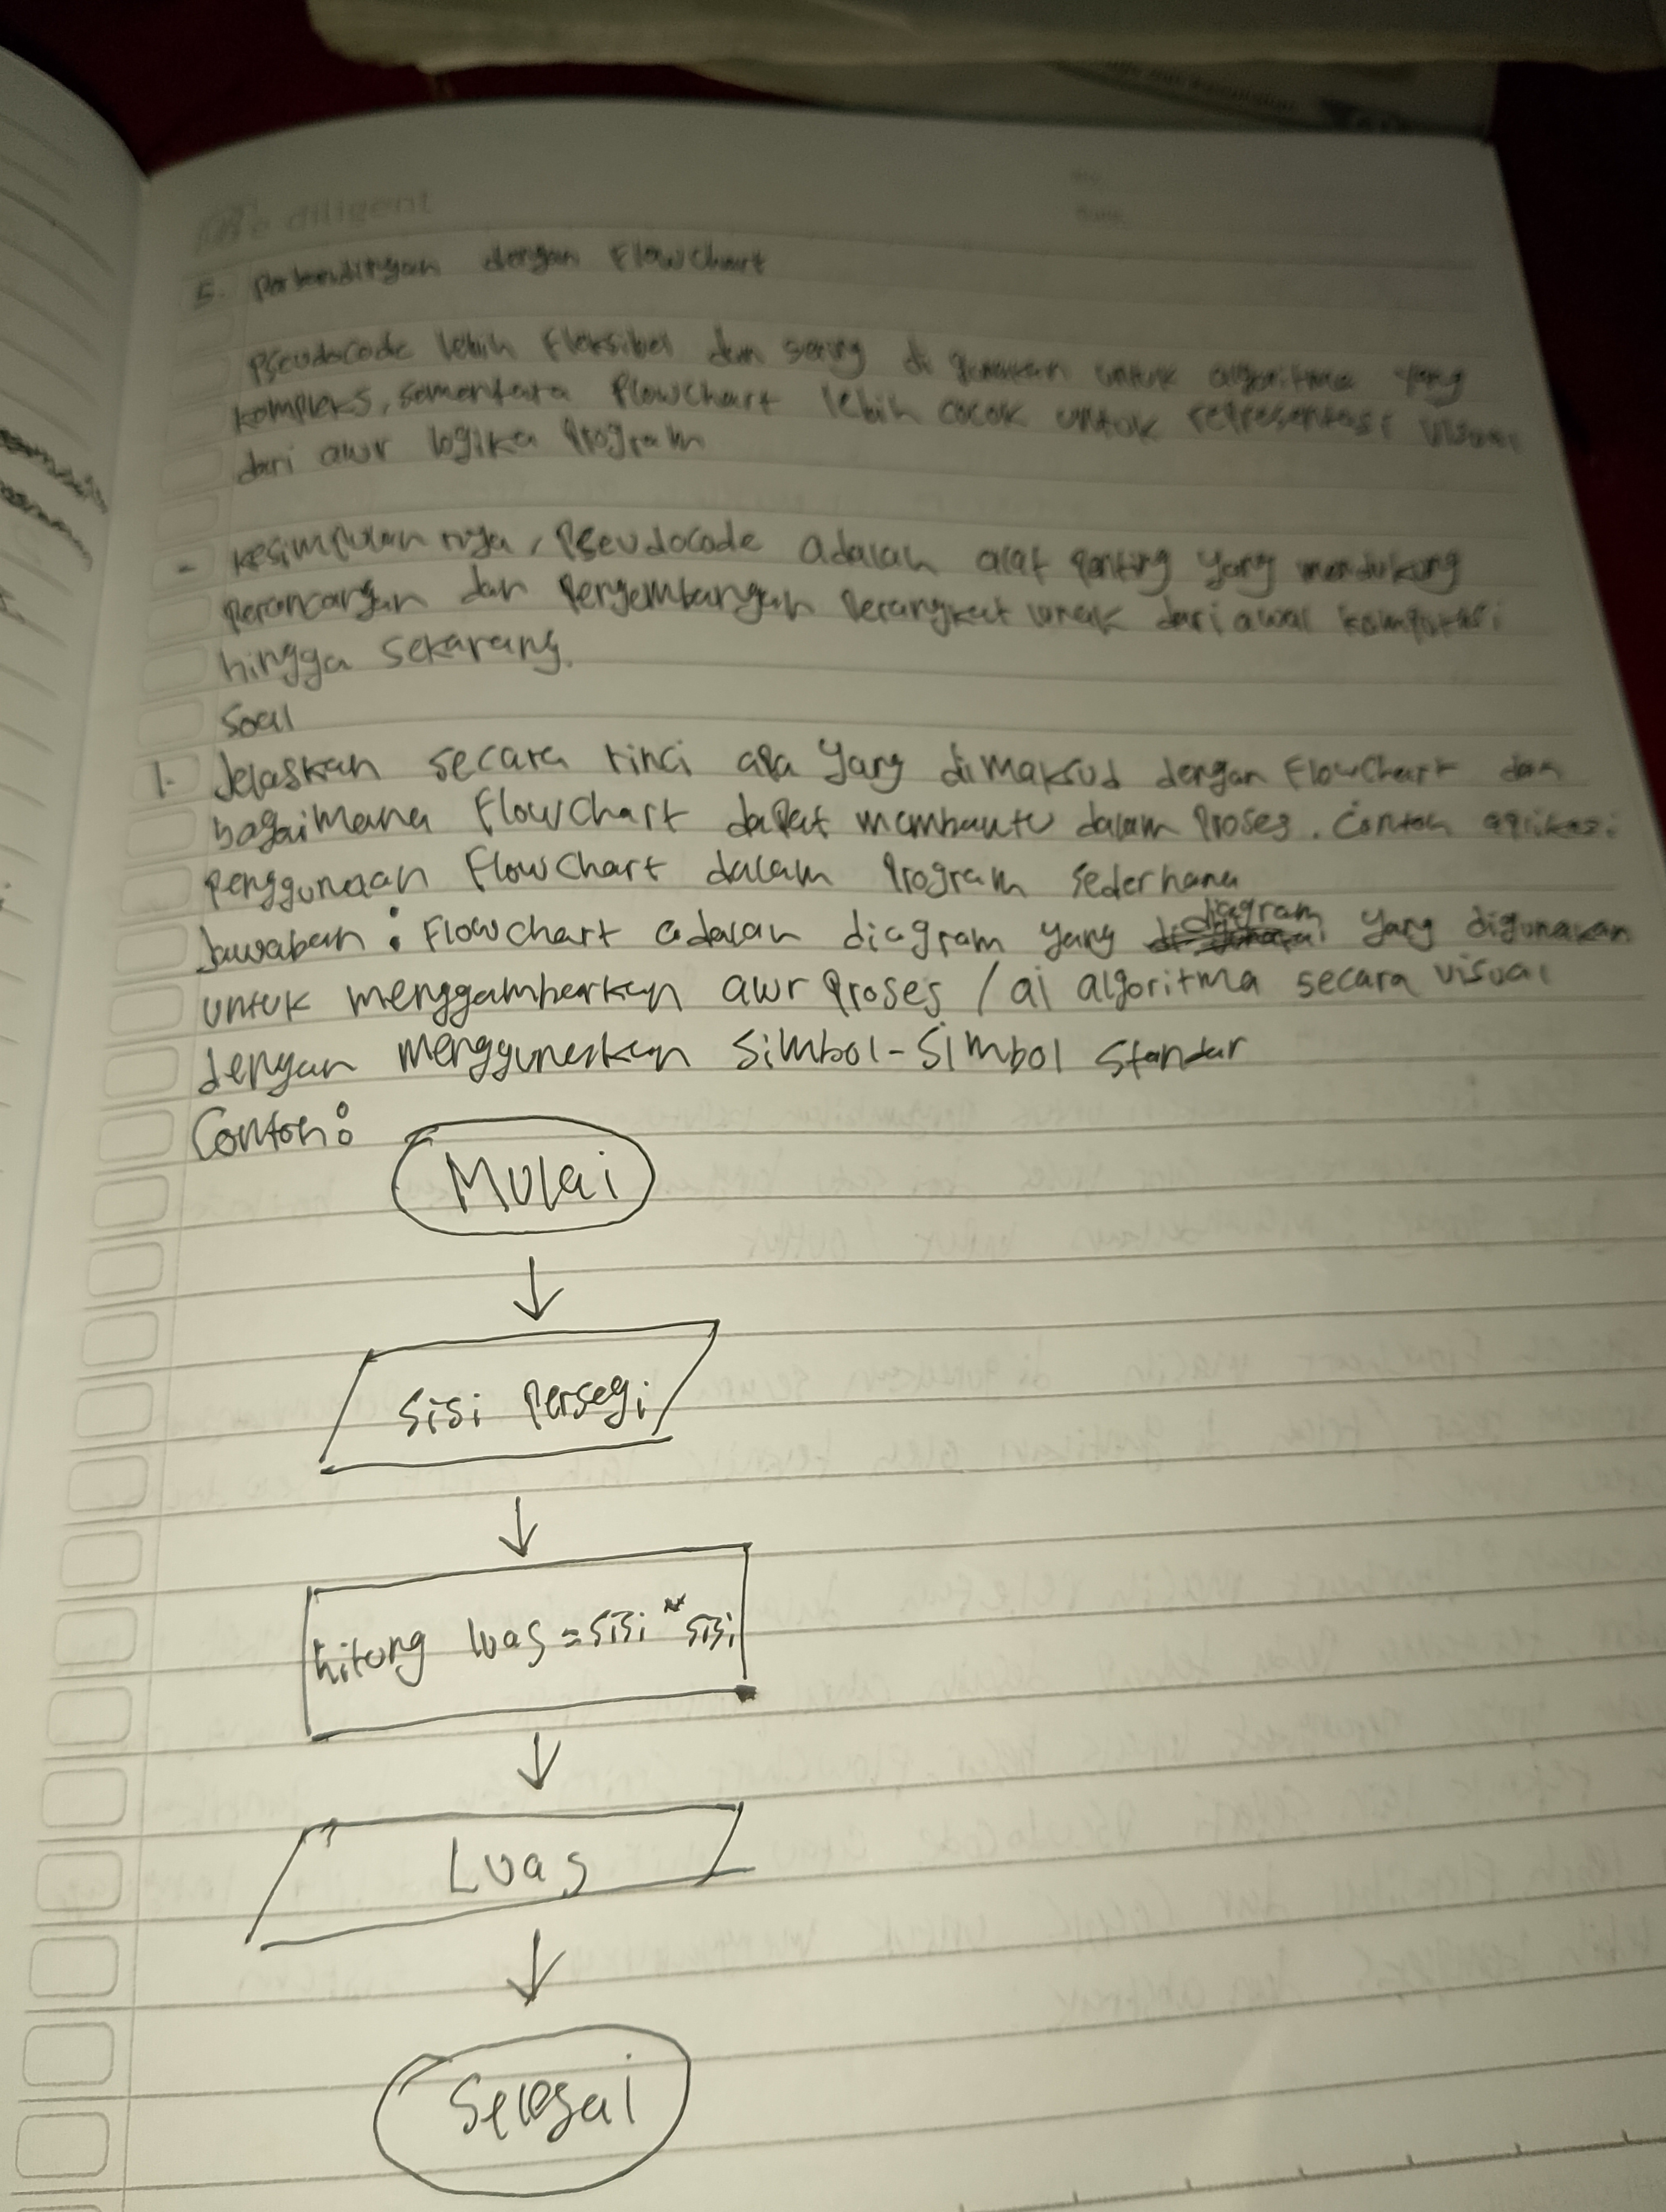 diligent
5. Perbandingan dengan Flowchart
Pseudocode lebih fleksibel dan sering di gunakan untuk algoritma yang
kompleks, sementara flowchart lebih cocok untuk representasi visual
dari alur logika program
- Kesimpulan nya, Pseudocode adalah alat penting yang mendukung
perancangan dan pengembangan perangkat lunak dari awal komputasi
hingga sekarang.
Soal
1. Jelaskan secara rinci apa yang dimaksud dengan Flowchart dan
bagaimana Flowchart dapat membantu dalam proses. Contoh aplikasi
penggunaan Flowchart dalam program sederhana
Jawaban : Flowchart adalah diagram yang diagram yang digunakan
untuk menggambarkan alur proses / al algoritma secara visual
dengan menggunakan simbol-simbol standar
Contoh :
Mulai
sisi persegi
hitung luas = sisi * sisi
Luas
Selesai